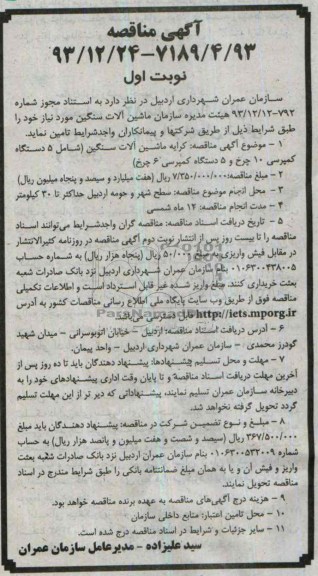 آگهی مناقصه
۹۳/۱۲/۲۴-۷۱۸۹/۴/۹۳
نوبت اول
سازمان عمران شهرداری اردبیل در نظر دارد به استناد مجوز شماره
۷۹۲-۹۳/۱۲/۱۲ هیئت مدیره سازمان ماشین آلات سنگین مورد نیاز خود را
طبق شرایط ذیل از طریق شرکتها و پیمانکاران واجدشرایط تامین نماید.
۱ - موضوع آگهی مناقصه: کرایه ماشین آلات سنگین (شامل ۵ دستگاه
کمپرسی ۱۰ چرخ و ۵ دستگاه کمپرسی ۶ چرخ)
۲ - مبلغ مناقصه: ۷/۳۵۰/۰۰۰/۰۰۰ ریال (هفت میلیارد و سیصد و پنجاه میلیون ریال)
۳ - محل انجام موضوع مناقصه: سطح شهر و حومه اردبیل حداکثر تا ۳۰ کیلومتر
۴ - مدت انجام مناقصه: ۱۲ ماه شمسی
۵ - تاریخ دریافت اسناد مناقصه: مناقصه گران واجدشرایط می‌توانند اسناد
مناقصه را تا بیست روز پس از انتشار نوبت دوم آگهی مناقصه در روزنامه کثیرالانتشار
در مقابل فیش واریزی به مبلغ ۵۰/۰۰۰ ریال (پنجاه هزار ریال) به شماره حساب
۰۱۰۶۳۰۰۴۳۸۰۰۵ بنام سازمان عمران شهرداری اردبیل نزد بانک صادرات شعبه
بعثت خریداری کنند. مبلغ واریز شده غیر قابل استرداد است و اطلاعات تکمیلی
مناقصه فوق از طریق وب سایت پایگاه ملی اطلاع رسانی مناقصات کشور به آدرس
http://iets.mporg.ir قابل دسترسی می‌باشد.
۶ - آدرس دریافت اسناد مناقصه: اردبیل - خیابان اتوبوسرانی - میدان شهید
گودرز محمدی - سازمان عمران شهرداری اردبیل - واحد پیمان.
۷ - مهلت و محل تسلیم پیشنهادها: پیشنهاد دهندگان باید تا ده روز پس از
آخرین مهلت دریافت اسناد مناقصه و تا پایان وقت اداری پیشنهادهای خود را به
دبیرخانه سازمان عمران تسلیم نمایند، پیشنهاداتی که دیر تر از این مهلت تسلیم
گردد تحویل گرفته نخواهد شد.
۸ - مبلغ و نوع تضمین شرکت در مناقصه: پیشنهاد دهندگان باید مبلغ
۳۶۷/۵۰۰/۰۰۰ ریال (سیصد و شصت و هفت میلیون و پانصد هزار ریال) به حساب
شماره ۰۱۰۶۳۰۰۵۳۲۰۰۹ بنام سازمان عمران اردبیل نزد بانک صادرات شعبه بعثت
واریز و فیش آن و یا به همان مبلغ ضمانتنامه بانکی را طبق شرایط مندرج در اسناد
مناقصه تحویل نمایند.
۹ - هزینه درج آگهی‌های مناقصه به عهده برنده مناقصه خواهد بود.
۱۰ - محل تامین اعتبار: منابع داخلی سازمان
۱۱ - سایر جزئیات و شرایط در اسناد مناقصه درج شده است.
سید علیزاده - مدیرعامل سازمان عمران